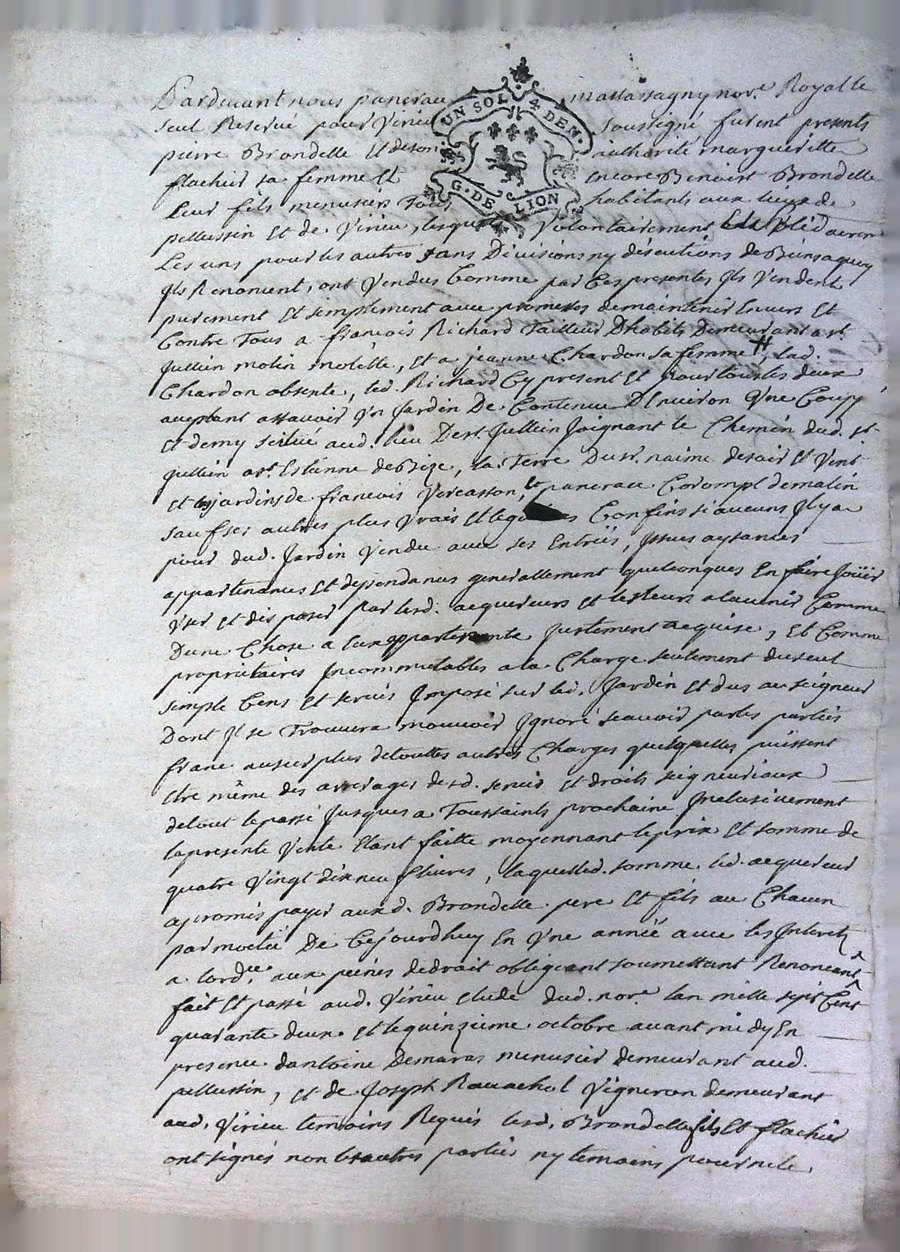 UN SOL 4. DEN.
G. DE LION
Pardevant nous panerau matassagny nore. Royalle
seul Reservé pour Virieu soussigné furent presents
pierre Brondelle Et deson authorité margueritte
flachier sa femme Et encore Benoist Brondelle
Leur fils menusier Tous habitants aux lieux de
pellussin Et de Virieu, lesquels Volontairement
Les uns pour les autres sans Divisions ny discutions de Biens aquoy
Ils Renoncent, ont Vendus Comme par Ces presentes Ils Vendent
purement Et simplement avec promesses de maintenir Envers Et
Contre Tous a françois Richard Tailleur Dhabits Demeurant a st.
Jullien molin molette, Et a jeanne Chardon sa femme H, lad.
Chardon absente, led. Richard Cy present Et pour tous les deux
aceptant assavoir Un Jardin De Contenue DEnviron Une Coupé
Et demy scitué aud. lieu De st. Jullien Joignant le Chemin dud. st.
jullien a st. Estienne de soir Et Vent
Et les jardins de françois panerau Corompt de matin
sauf ses autres plus Vrais Et Confins si aucuns Ily a
pour dud. Jardin Vendu avec ses Entrées, Issues aysances
appartenances Et dependances generallement quelconques En faire Joüir
User Et disposer par lesd. acquereurs Et les leurs a lavenir Comme
Dune Chose a Eux appartenante justement acquise, Et Comme
propriétaires Incommutables a la Charge seulement du seul
simple Cens Et servis Imposé sur led. Jardin Et dus au seigneur
Dont Il se Trouvera mouvoir Ignoré scavoir par les parties
franc au surplus de touttes autres Charges quelquelles puissent
Etre même des arrerages desd. servis Et droits seigneuriaux
de tout le passé Jusques a Toussaints prochaine Inclusivement
la presente Vente Etant faitte moyennant le prix Et somme de
quatre Vingt dix neuf livres, laquelled. somme led. acquereur
a promis payer auxd. Brondelle pere Et fils au Chacun
par moitié De Cejourdhuy En Une année avec les Interets
a lordre. aux peines de droit obligeant soumettant Renonceant
fait Et passé aud. Virieu Etude dud. nore. lan mille sept Cent
quarante deux Et le quinzieme octobre avant midy En
presence dantoine Demaras menusier demeurant aud.
pellussin, Et de Joseph Ravachol Vigneron demeurant
aud. Virieu temoins Requis lesd. Brondelle fils Et flachier
ont signés non les autres parties ny temoins pour ne le